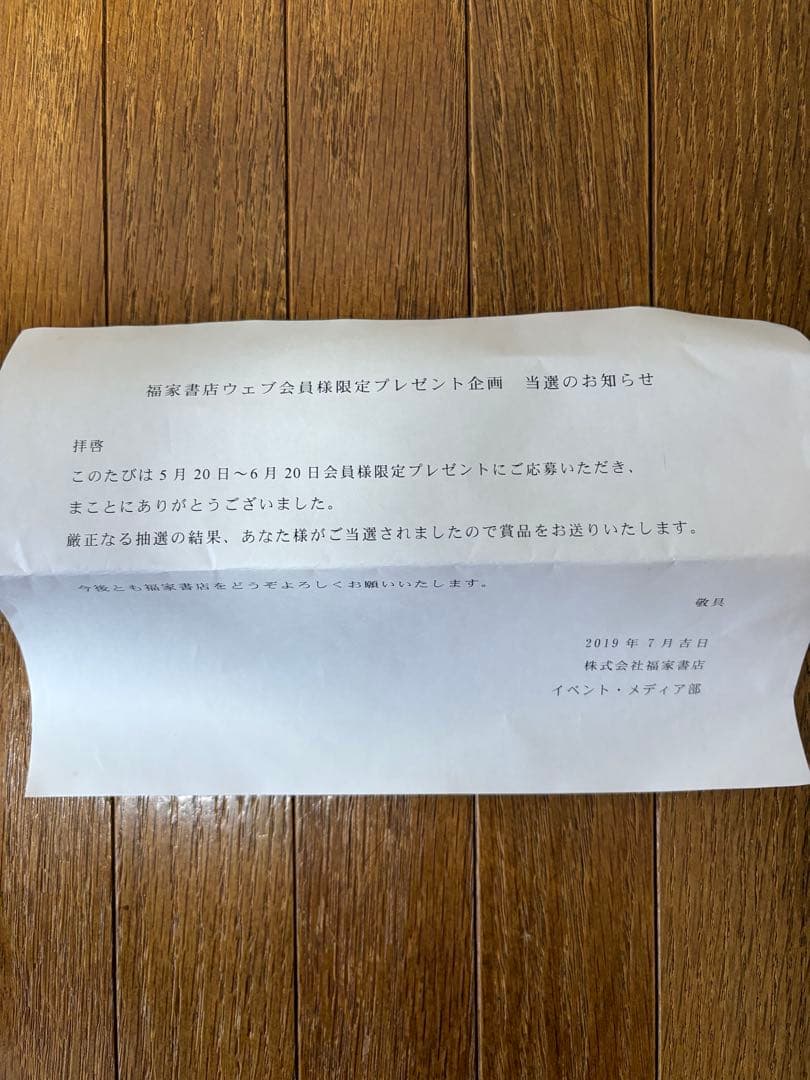 福家書店ウェブ会員様限定プレゼント企画　当選のお知らせ
拝啓
このたびは5月20日～6月20日会員様限定プレゼントにご応募いただき、
まことにありがとうございました。
厳正なる抽選の結果、あなた様がご当選されましたので賞品をお送りいたします。
今後とも福家書店をどうぞよろしくお願いいたします。
敬具
2019年7月吉日
株式会社福家書店
イベント・メディア部